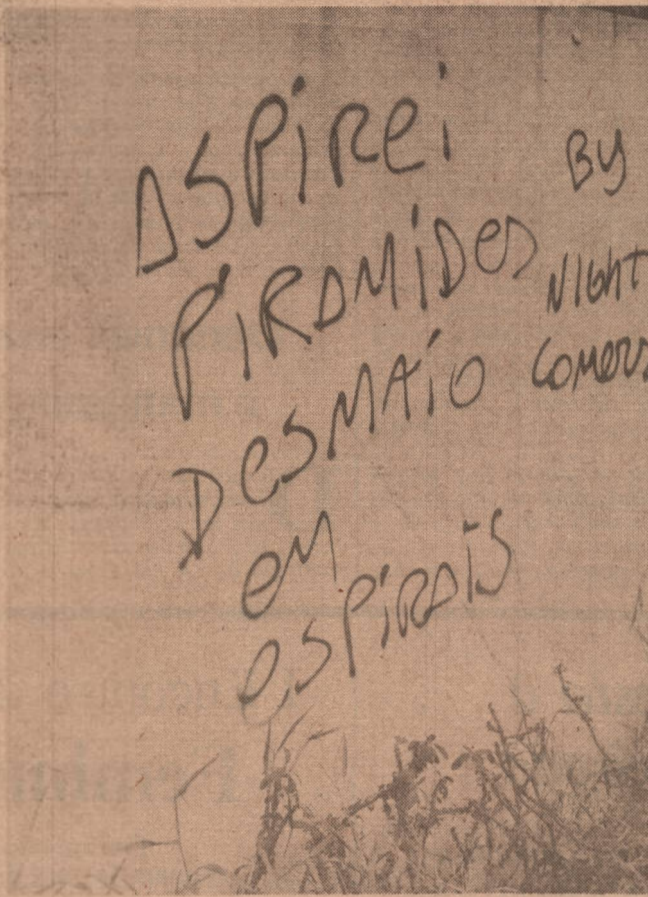 ASPiRei
PiRAMiDes
DesMAiO
eM
esPiRAiS
BY
NIGHT